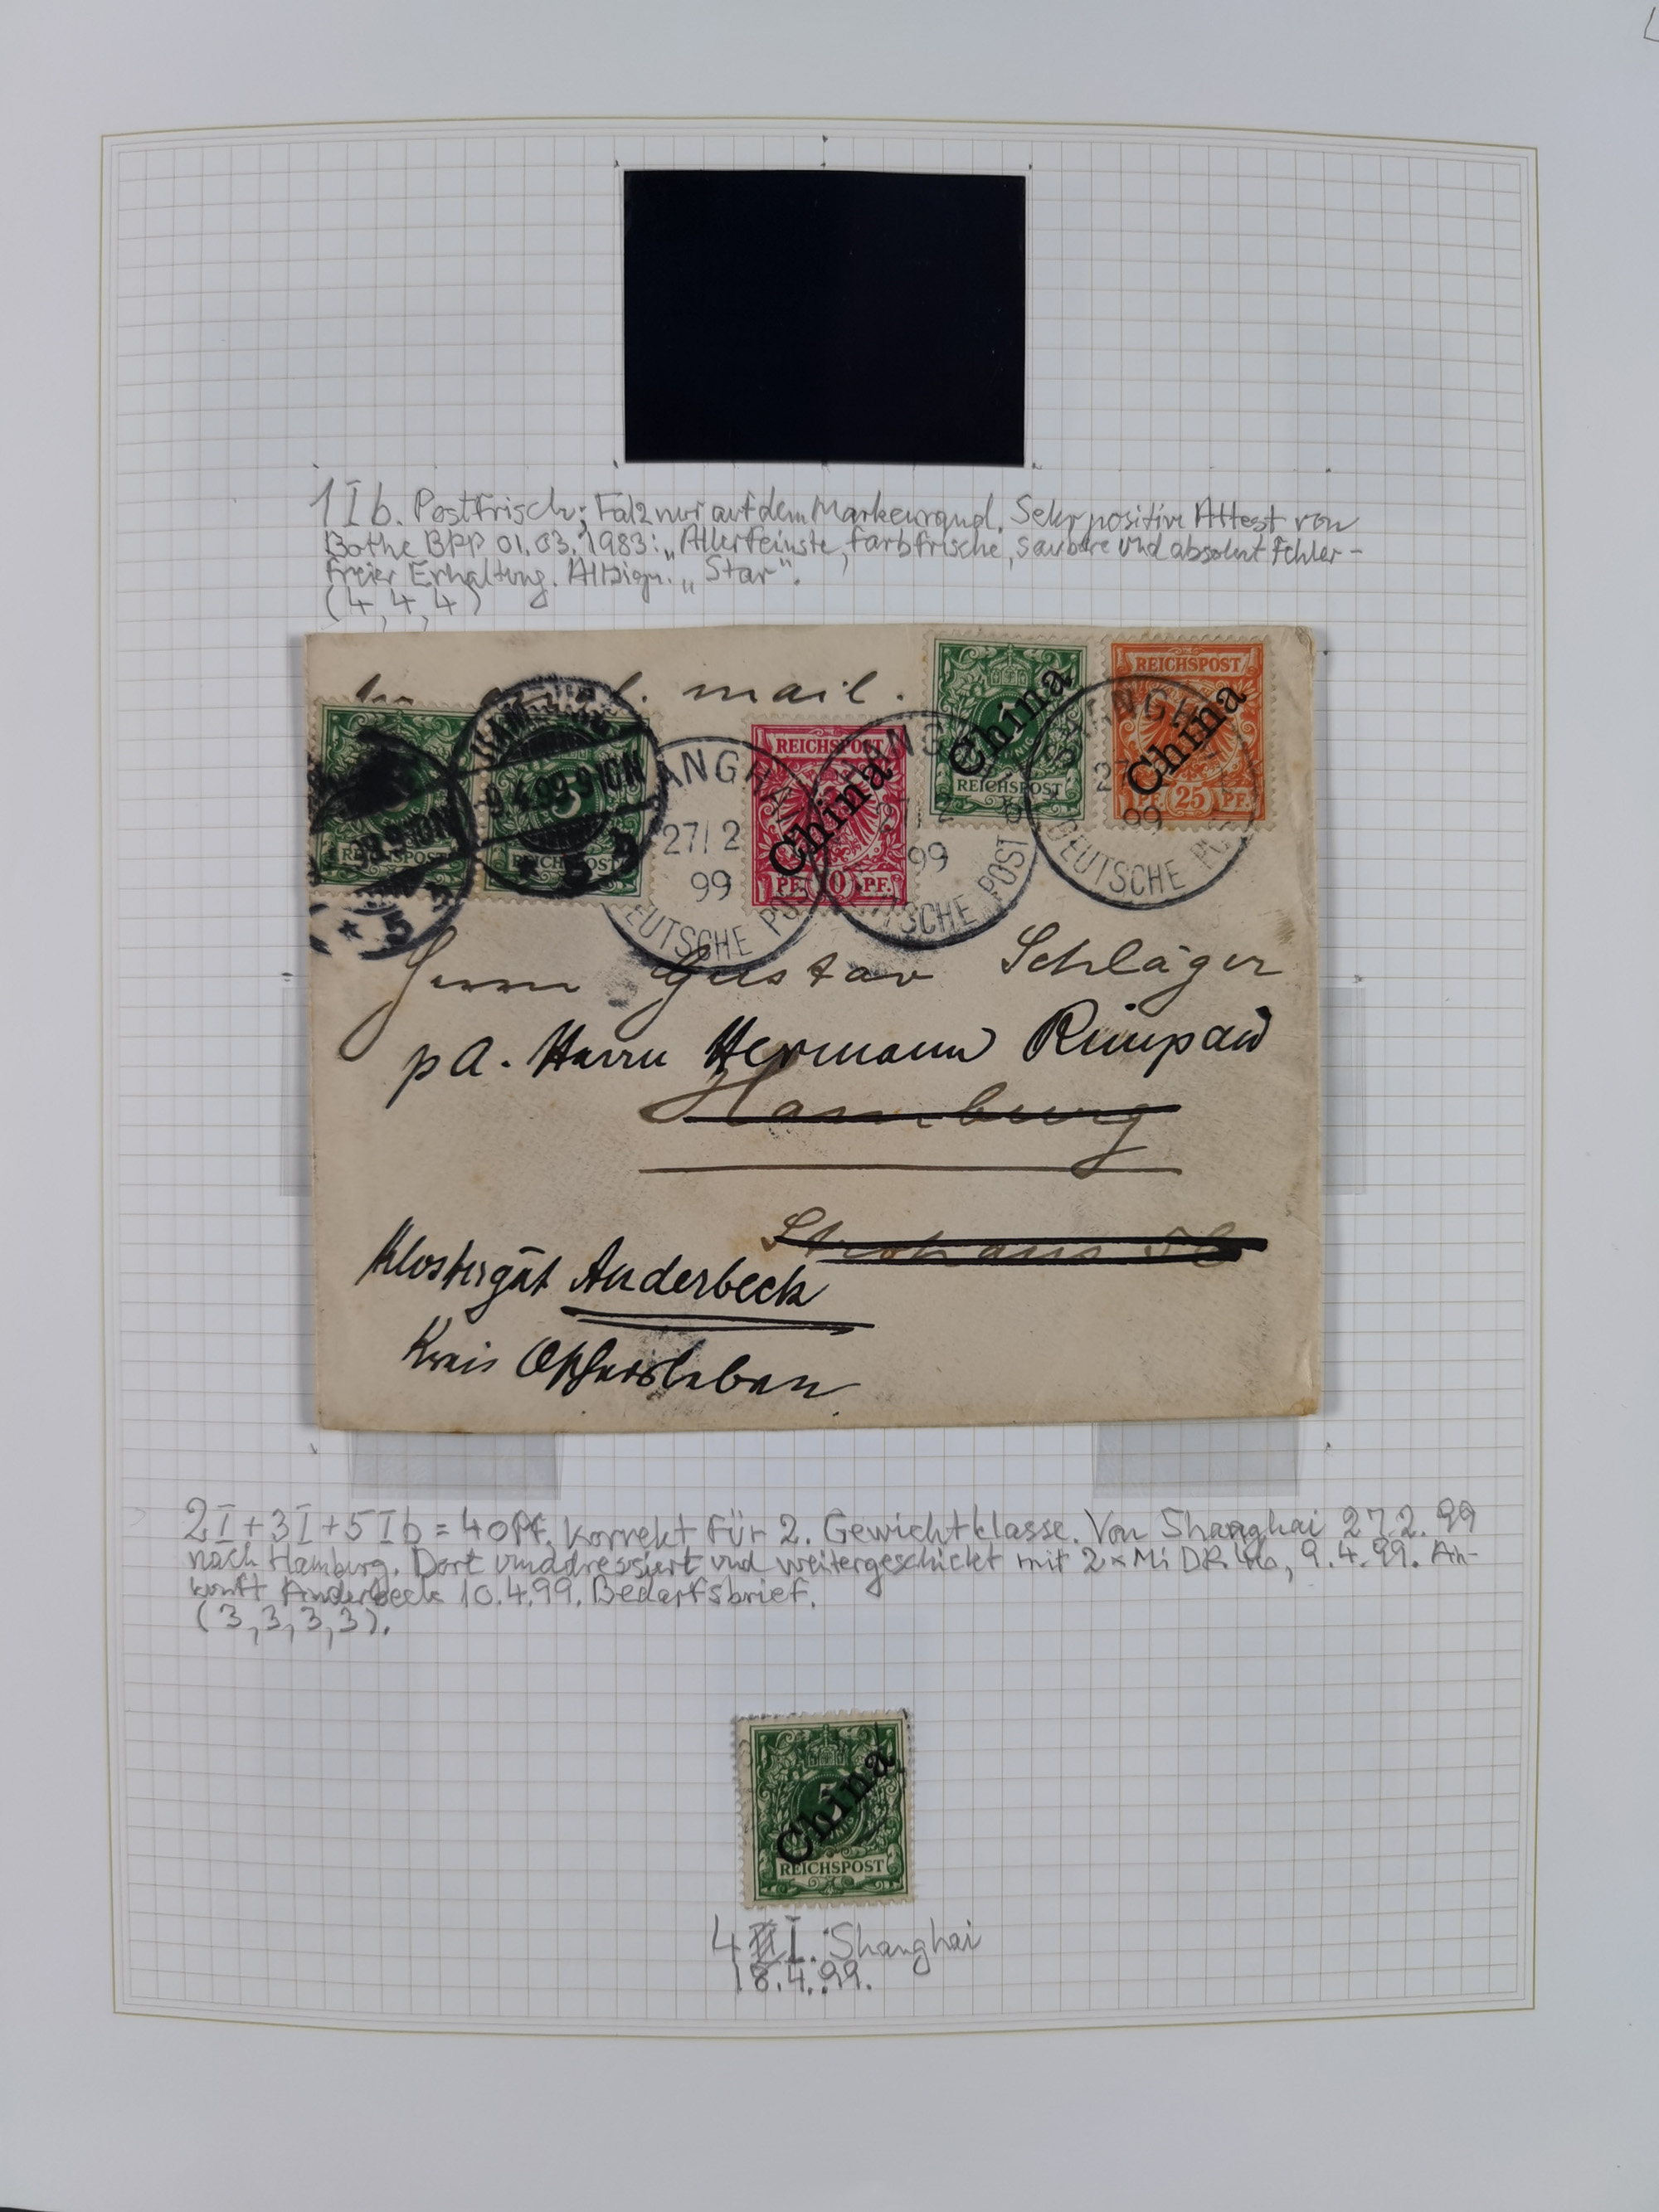 1 I b. Postfrisch; Falz nur auf dem Markenrand. Sehr positiv Attest von
Bothe BPP 01.03.1983: „Allerfeinste, farbfrische, saubere und absolut fehler-
freier Erhaltung. Altsign. „Star“.
(4, 4, 4)
mail.
REICHSPOST
China
REICHSPOST
China
PF. 25 PF.
HAMBURG
9.4.99.9-10N
* 5 b
9-10N
* 5
REICHSPOST
REICHSPOST
REICHSPOST
China
PF. 10 PF.
SHANGHAI
27/2
99
DEUTSCHE POST
SHANGHAI
2
99
DEUTSCHE POST
b
SHANGHAI
27
99
DEUTSCHE POST
Herrn Gustav Schläger
pa. Herrn Hermann Rimpau
Hamburg
Klostergut Anderbeck
Kreis Oschersleben
2I+3I+5Ib = 40 Pf. Korrekt für 2. Gewichtklasse. Von Shanghai 27.2.99
nach Hamburg. Dort umadressiert und weitergeschickt mit 2x Mi DR 46, 9.4.99. An-
kunft Anderbeck 10.4.99. Bedarfsbrief.
(3,3,3,3).
China
REICHSPOST
4 I. Shanghai
18.4.99.